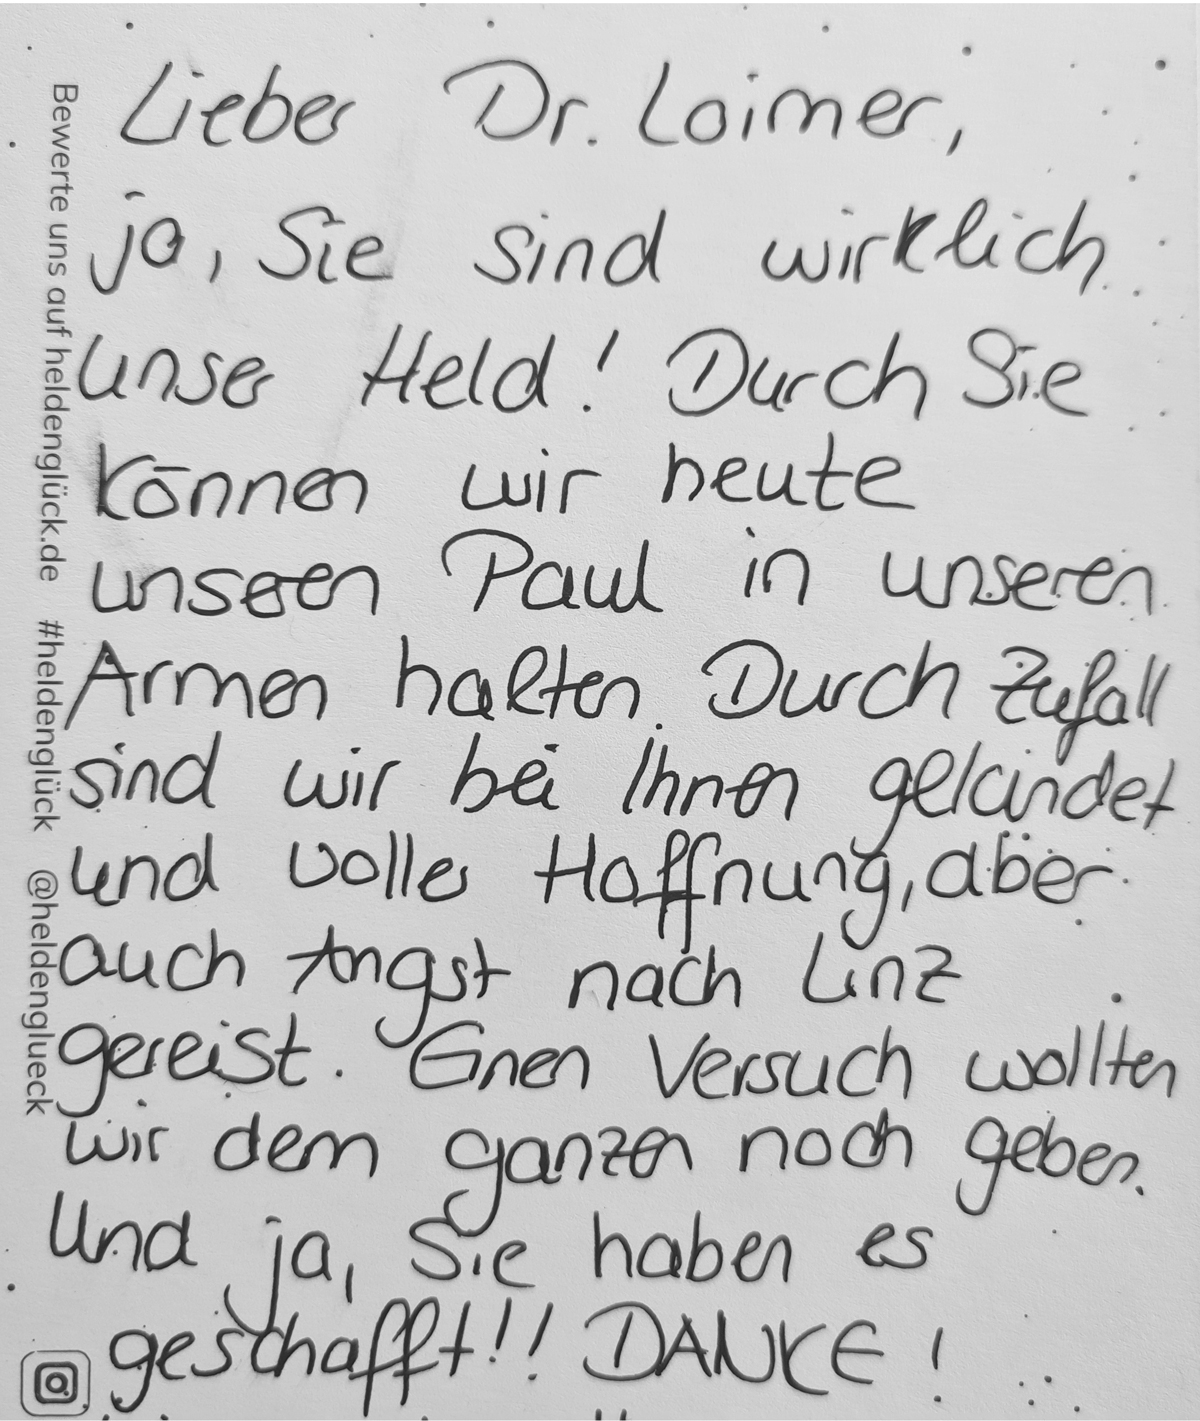 Lieber Dr. Loimer,
ja, Sie sind wirklich
unser Held! Durch Sie
können wir heute
unseren Paul in unseren
Armen halten. Durch Zufall
sind wir bei Ihnen gelandet
und voller Hoffnung, aber
auch Angst nach Linz
gereist. Einen Versuch wollten
wir dem ganzen noch geben.
Und ja, Sie haben es
geschafft!! DANKE!
Bewerte uns auf heldenglück.de #heldenglück @heldenglueck